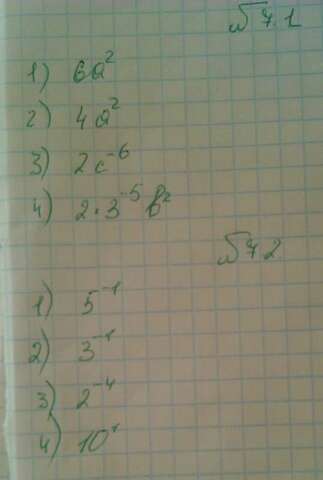 № 7.1
1) 6a²
2) 4a²
3) 2c⁻⁶
4) 2·3⁻⁵ b²
№ 7.2
1) 5⁻¹
2) 3⁻¹
3) 2⁻⁴
4) 10¹